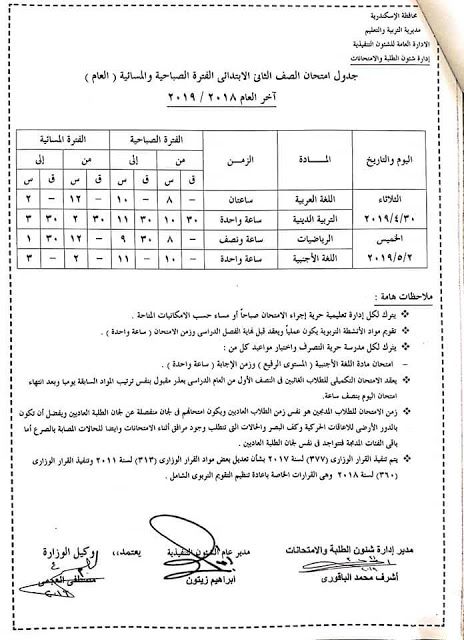 محافظة الإسكندرية
مديرية التربية والتعليم
الادارة العامة للشئون التنفيذية
إدارة شئون الطلبة والامتحانات
جدول امتحان الصف الثانى الابتدائى الفترة الصباحية والمسائية ( العام )
آخر العام ٢٠١٨ / ٢٠١٩
اليوم والتاريخ المــادة الزمـن الفترة الصباحية الفترة المسائية
من إلى من إلى
ق س ق س ق س ق س
الثلاثاء ٢٠١٩/٤/٣٠ اللغة العربية ساعتان – ٨ – ١٠ – ١٢ – ٢
التربية الدينية ساعة واحدة ٣٠ ١٠ ٣٠ ١١ ٣٠ ٢ ٣٠ ٣
الخميس ٢٠١٩/٥/٢ الرياضيات ساعة ونصف – ٨ ٣٠ ٩ – ١٢ ٣٠ ١
اللغة الأجنبية ساعة واحدة – ١٠ – ١١ – ٢ – ٣
ملاحظات هامة :
يترك لكل إدارة تعليمية حرية إجراء الامتحان صباحاً أو مساء حسب الامكانيات المتاحة .
تقويم مواد الأنشطة التربوية يكون عملياً ويعقد قبل نهاية الفصل الدراسى وزمن الامتحان ( ساعة واحدة ) .
يترك لكل مدرسة حرية التصرف واختيار مواعيد كل من :
– امتحان مادة اللغة الأجنبية ( المستوى الرفيع ) وزمن الإجابة ( ساعة واحدة ) .
يعقد الامتحان التكميلى للطلاب الغائبين فى النصف الأول من العام الدراسى بعذر مقبول بنفس ترتيب المواد السابقة يوميا وبعد انتهاء
امتحان اليوم بنصف ساعة.
زمن الامتحان للطلاب المدمجين هو نفس زمن الطلاب العاديين ويكون امتحانهم فى لجان منفصلة عن لجان الطلبة العاديين ويفضل أن تكون
بالدور الأرضى للاعاقات الحركية وكف البصر والحالات التى تتطلب وجود مرافق أثناء الامتحانات وايضا للحالات المصابة بالصرع أما
باقى الفئات المدمجة فتتواجد فى نفس لجان الطلبة العاديين .
يتم تنفيذ القرار الوزارى (٣٧٧) لسنة ٢٠١٧ بشأن تعديل بعض مواد القرار الوزارى (٣١٣) لسنة ٢٠١١ وتنفيذ القرار الوزارى
(٣٦٠) لسنة ٢٠١٨ وهى القرارات الخاصة باعادة تنظيم التقويم التربوى الشامل .
مدير إدارة شئون الطلبة والامتحانات مدير عام الشئون التنفيذية يعتمد،، وكيل الوزارة
أشرف محمد الباقورى ابراهيم زيتون مصطفى العجمى